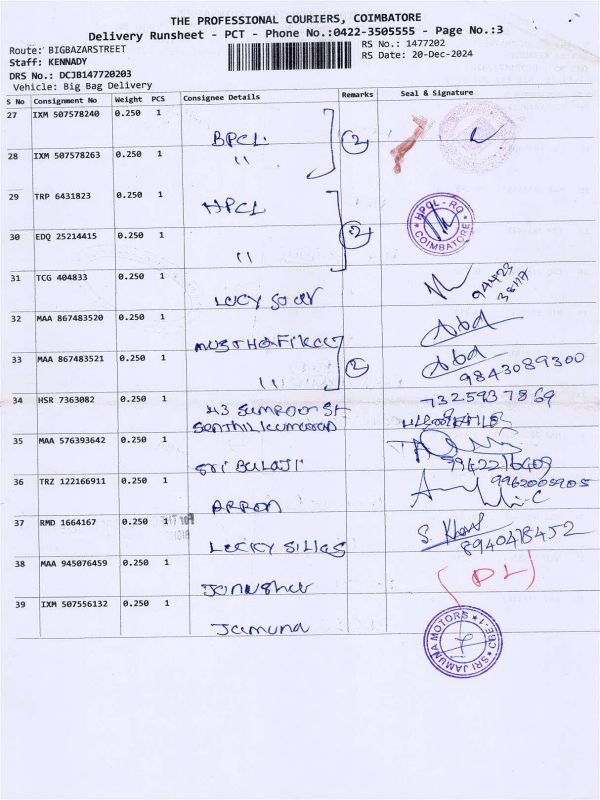 THE PROFESSIONAL COURIERS, COIMBATORE
Delivery Runsheet - PCT - Phone No.:0422-3505555 - Page No.:3
Route: BIGBAZARSTREET
RS No.: 1477202
Staff: KENNADY
RS Date: 20-Dec-2024
DRS No.: DCJB147720203
Vehicle: Big Bag Delivery
S No Consignment No Weight PCS Consignee Details Remarks Seal & Signature
27 IXM 507578240 0.250 1
BPCL
2
28 IXM 507578263 0.250 1
"
29 TRP 6431823 0.250 1
HPCL
HPCL - RO
COIMBATORE
2
30 EDQ 25214415 0.250 1
"
31 TCG 404833 0.250 1
94423
32 MAA 867483520 0.250 1
33 MAA 867483521 0.250 1
"
2
9843089300
34 HSR 7363082 0.250 1
7325937869
43
Senthilkumaran
35 MAA 576393642 0.250 1
Sri Balaji
36 TRZ 122166911 0.250 1
ARRON
37 RMD 1664167 0.250 1
8940418452
38 MAA 945076459 0.250 1
(DL)
39 IXM 507556132 0.250 1
Jamuna
SRI JAMUNA MOTORS
CBE-1